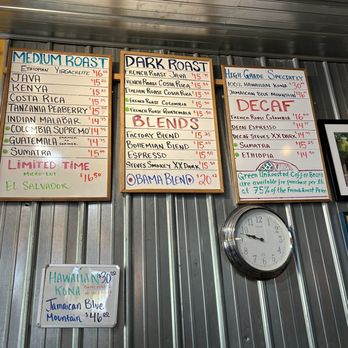 MEDIUM ROAST
ETHIOPIAN YIRGACHEFFE $16
JAVA $15
KENYA $15
COSTA RICA $15
TANZANIA PEABERRY $15
INDIAN MALABAR $14
COLOMBIA SUPREMO $14
GUATEMALA $14
SUMATRA $15
LIMITED TIME
MICRO-LOT
EL SALVADOR $16.50
DARK ROAST
FRENCH ROAST JAVA $15
FRENCH ROAST COSTA RICA $15
ITALIAN ROAST COSTA RICA $15
FRENCH ROAST COLOMBIA
FRENCH ROAST GUATEMALA
BLENDS
FACTORY BLEND
BOHEMIAN BLEND
ESPRESSO
STEVES SMOKEY XX DARK
OBAMA BLEND $20
HIGH GRADE SPECIALTY
100% HAWAIIAN KONA $30
JAMAICAN BLUE MOUNTAIN
DECAF
FRENCH ROAST COLOMBIA
DECAF ESPRESSO
DECAF STEVE'S XX DARK
SUMATRA $15
ETHIOPIA $14
Green Unroasted Coffee Beans
are available for purchase per lb
at 75% of the French Roast Price
HAWAIIAN $30
KONA
Jamaican Blue
Mountain $46